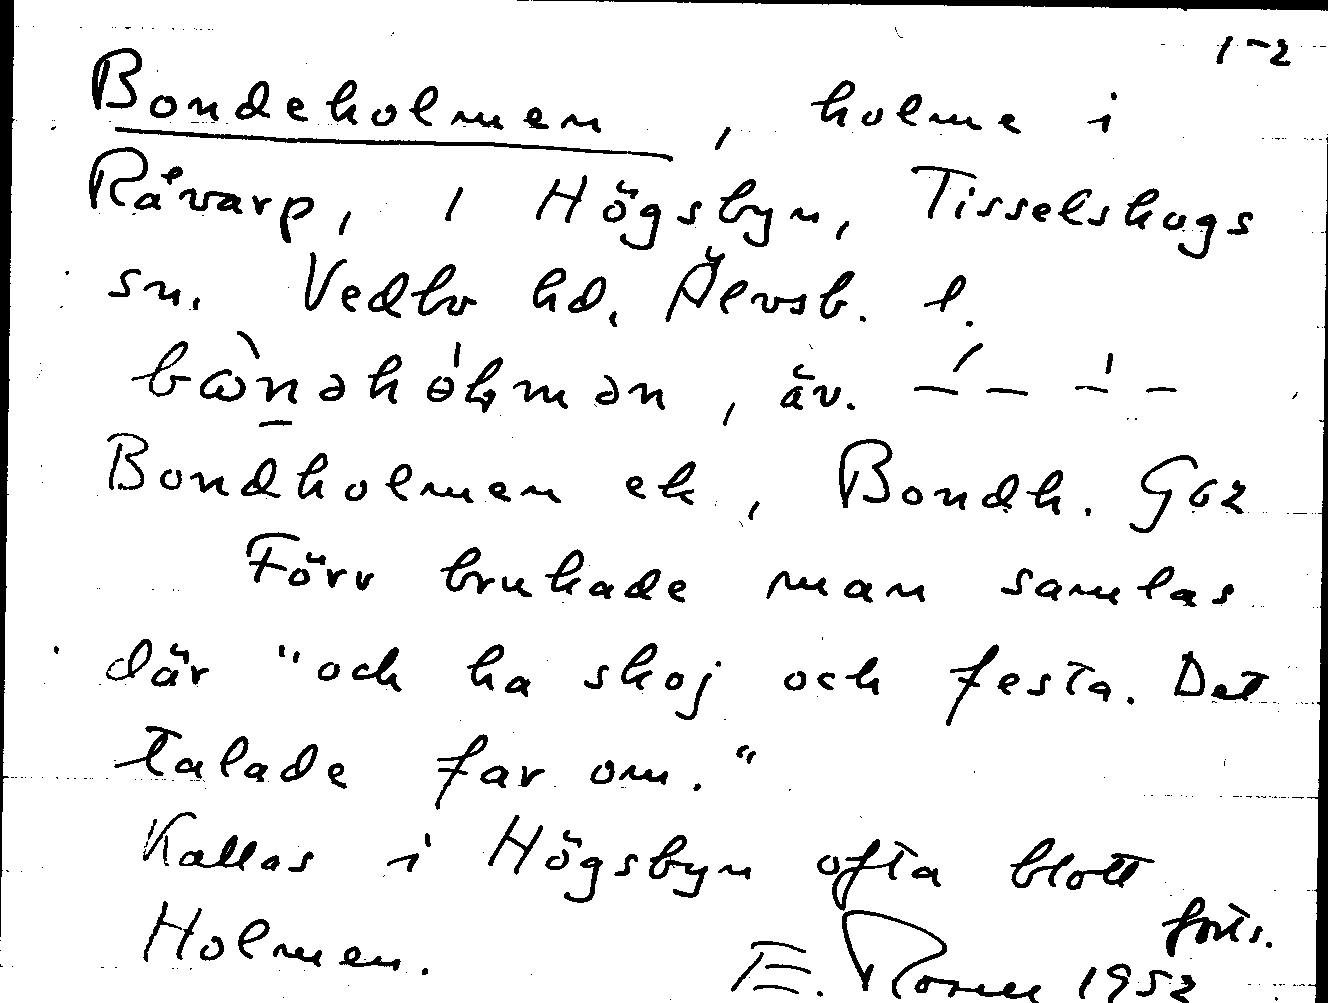 1-2
Bondeholmen, holme i
Råvarp, 1 Högsbyn, Tisselskogs
sn. Vedbo hd. Älvsb. l.
äv.
Bondholmen ek, Bondh. Gez
Förr brukade man samlas
där "och ha skoj och festa. Det
talade far om."
Kallas i Högsbyn ofta blott
Holmen.
forts.
E. 1952